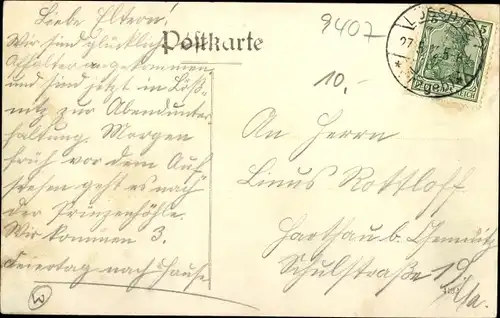 Liebe Eltern!
Wir sind glücklich
Affalter angekommen
und sind jetzt in Löß-
nitz zur Abendunter
haltung. Morgen
früh vor dem Auf
stehen geht es nach
der Prinzenhöhle.
Wir kommen 3.
Feiertag nach Hause
3
Postkarte
9407
10.-
LÖSSNITZ
27
An Herrn
Linus Rottloff
Harthau b. Chemnitz
Schulstraße 19
i/Sa.